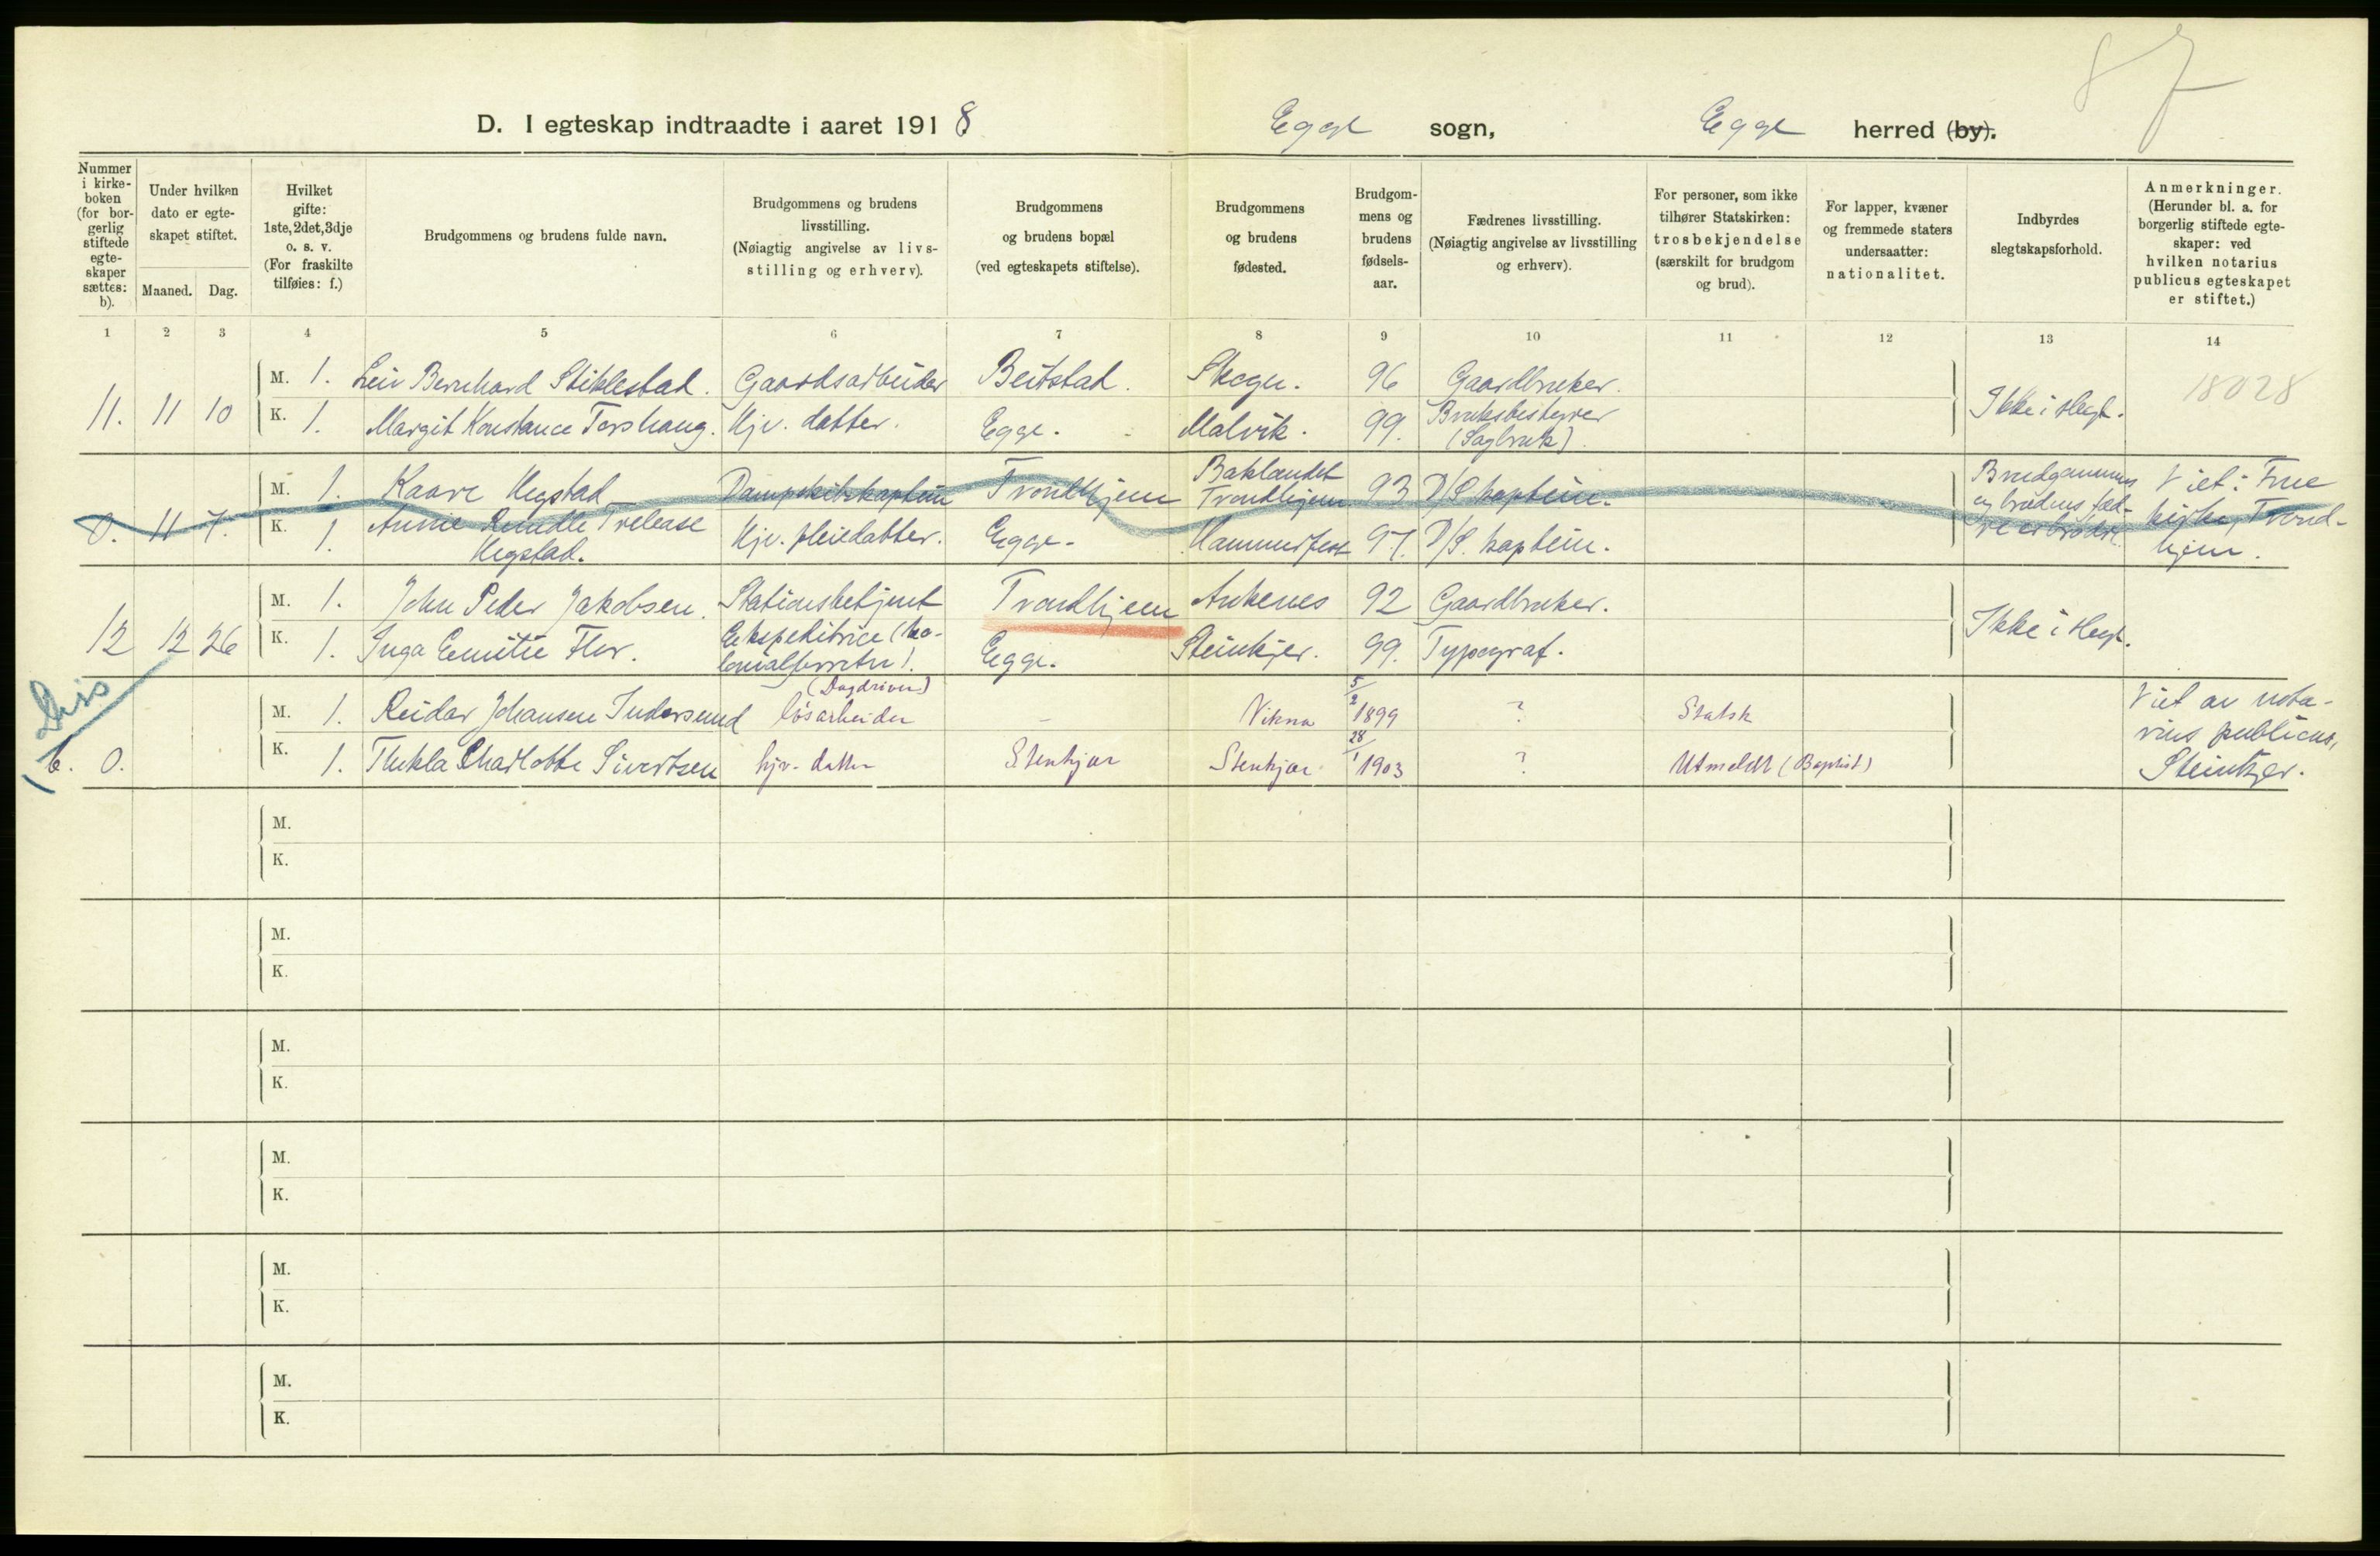 87
D. I egteskap indtraadte i aaret 1918
Egge sogn, Egge herred (by).
Nummer i kirke-boken (for bor-gerlig stiftede egte-skaper sættes: b).
Under hvilken dato er egte-skapet stiftet.
Maaned. Dag.
Hvilket gifte: 1ste, 2det, 3dje o. s. v. (For fraskilte tilføies: f.)
Brudgommens og brudens fulde navn.
Brudgommens og brudens livsstilling. (Nøiagtig angivelse av livs-stilling og erhverv).
Brudgommens og brudens bopæl (ved egteskapets stiftelse).
Brudgommens og brudens fødested.
Brudgom-mens og brudens fødsels-aar.
Fædrenes livsstilling. (Nøiagtig angivelse av livsstilling og erhverv).
For personer, som ikke tilhører Statskirken: trosbekjendelse (særskilt for brudgom og brud).
For lapper, kvæner og fremmede staters undersaatter: nationalitet.
Indbyrdes slegtskapsforhold.
Anmerkninger. (Herunder bl. a. for borgerlig stiftede egte-skaper: ved hvilken notarius publicus egteskapet er stiftet.)
1 2 3 4 5 6 7 8 9 10 11 12 13 14
M. 1. Leiv Bernhard Stiklestad. Gaardsarbeider Beitstad. Skogn. 96 Gaardbruker. 18028
11. 11 10 K. 1. Margit Konstance Torshaug. Hjv. datter. Egge. Malvik. 99. Bruksbestyrer (Sagbruk). Ikke i slegt.
M. 1. Kaare Hegstad Dampskibskaptein Trondhjem Baklandet Trondhjem 93 D/S. kaptein. Brudgommens og brudens fæd-re er brødre. Viet: Frue kirke, Trond-hjem.
0. 11 7. K. 1. Annie Rundle Trelease Hegstad. Hjv. pleiedatter. Egge. Hammerfest 97. D/S. kaptein.
M. 1. John Peder Jakobsen. Stationsbetjent Trondhjem Ankenes 92 Gaardbruker.
12 12 26 K. 1. Inga Emilie Flor. Ekspeditrice (ko-lonialforretn). Egge. Steinkjer. 99. Typograf. Ikke i slegt.
Dis
M. 1. Reidar Johansen Indersund (Dagdriver) løsarbeider – Vikna 5/2 1899 ? Statsk Viet av nota-rius publicus, Steinkjer.
b. 0. K. 1. Thekla Charlotte Sivertsen hjv. datter Stenkjær Stenkjær 28/1 1903 ? Utmeldt (Baptist)
M.
K.
M.
K.
M.
K.
M.
K.
M.
K.
M.
K.